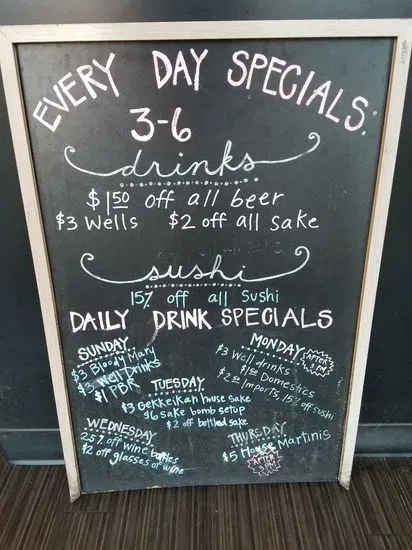 EVERY DAY SPECIALS:
3-6
drinks
$1 50 off all beer
$3 Wells $2 off all sake
sushi
15% off all Sushi
DAILY DRINK SPECIALS
SUNDAY
$3 Bloody Mary
$3 Well Drinks
$1 PBR
MONDAY
AFTER
$3 Well Drinks
$1 50 Domestics
$2 50 Imports, 15% off sushi
TUESDAY
$3 Gekkeikan house sake
$6 sake bomb setup
$2 off bottled sake
WEDNESDAY
25% off wine bottles
$2 off glasses of wine
THURSDAY
$5 House Martinis
AFTER